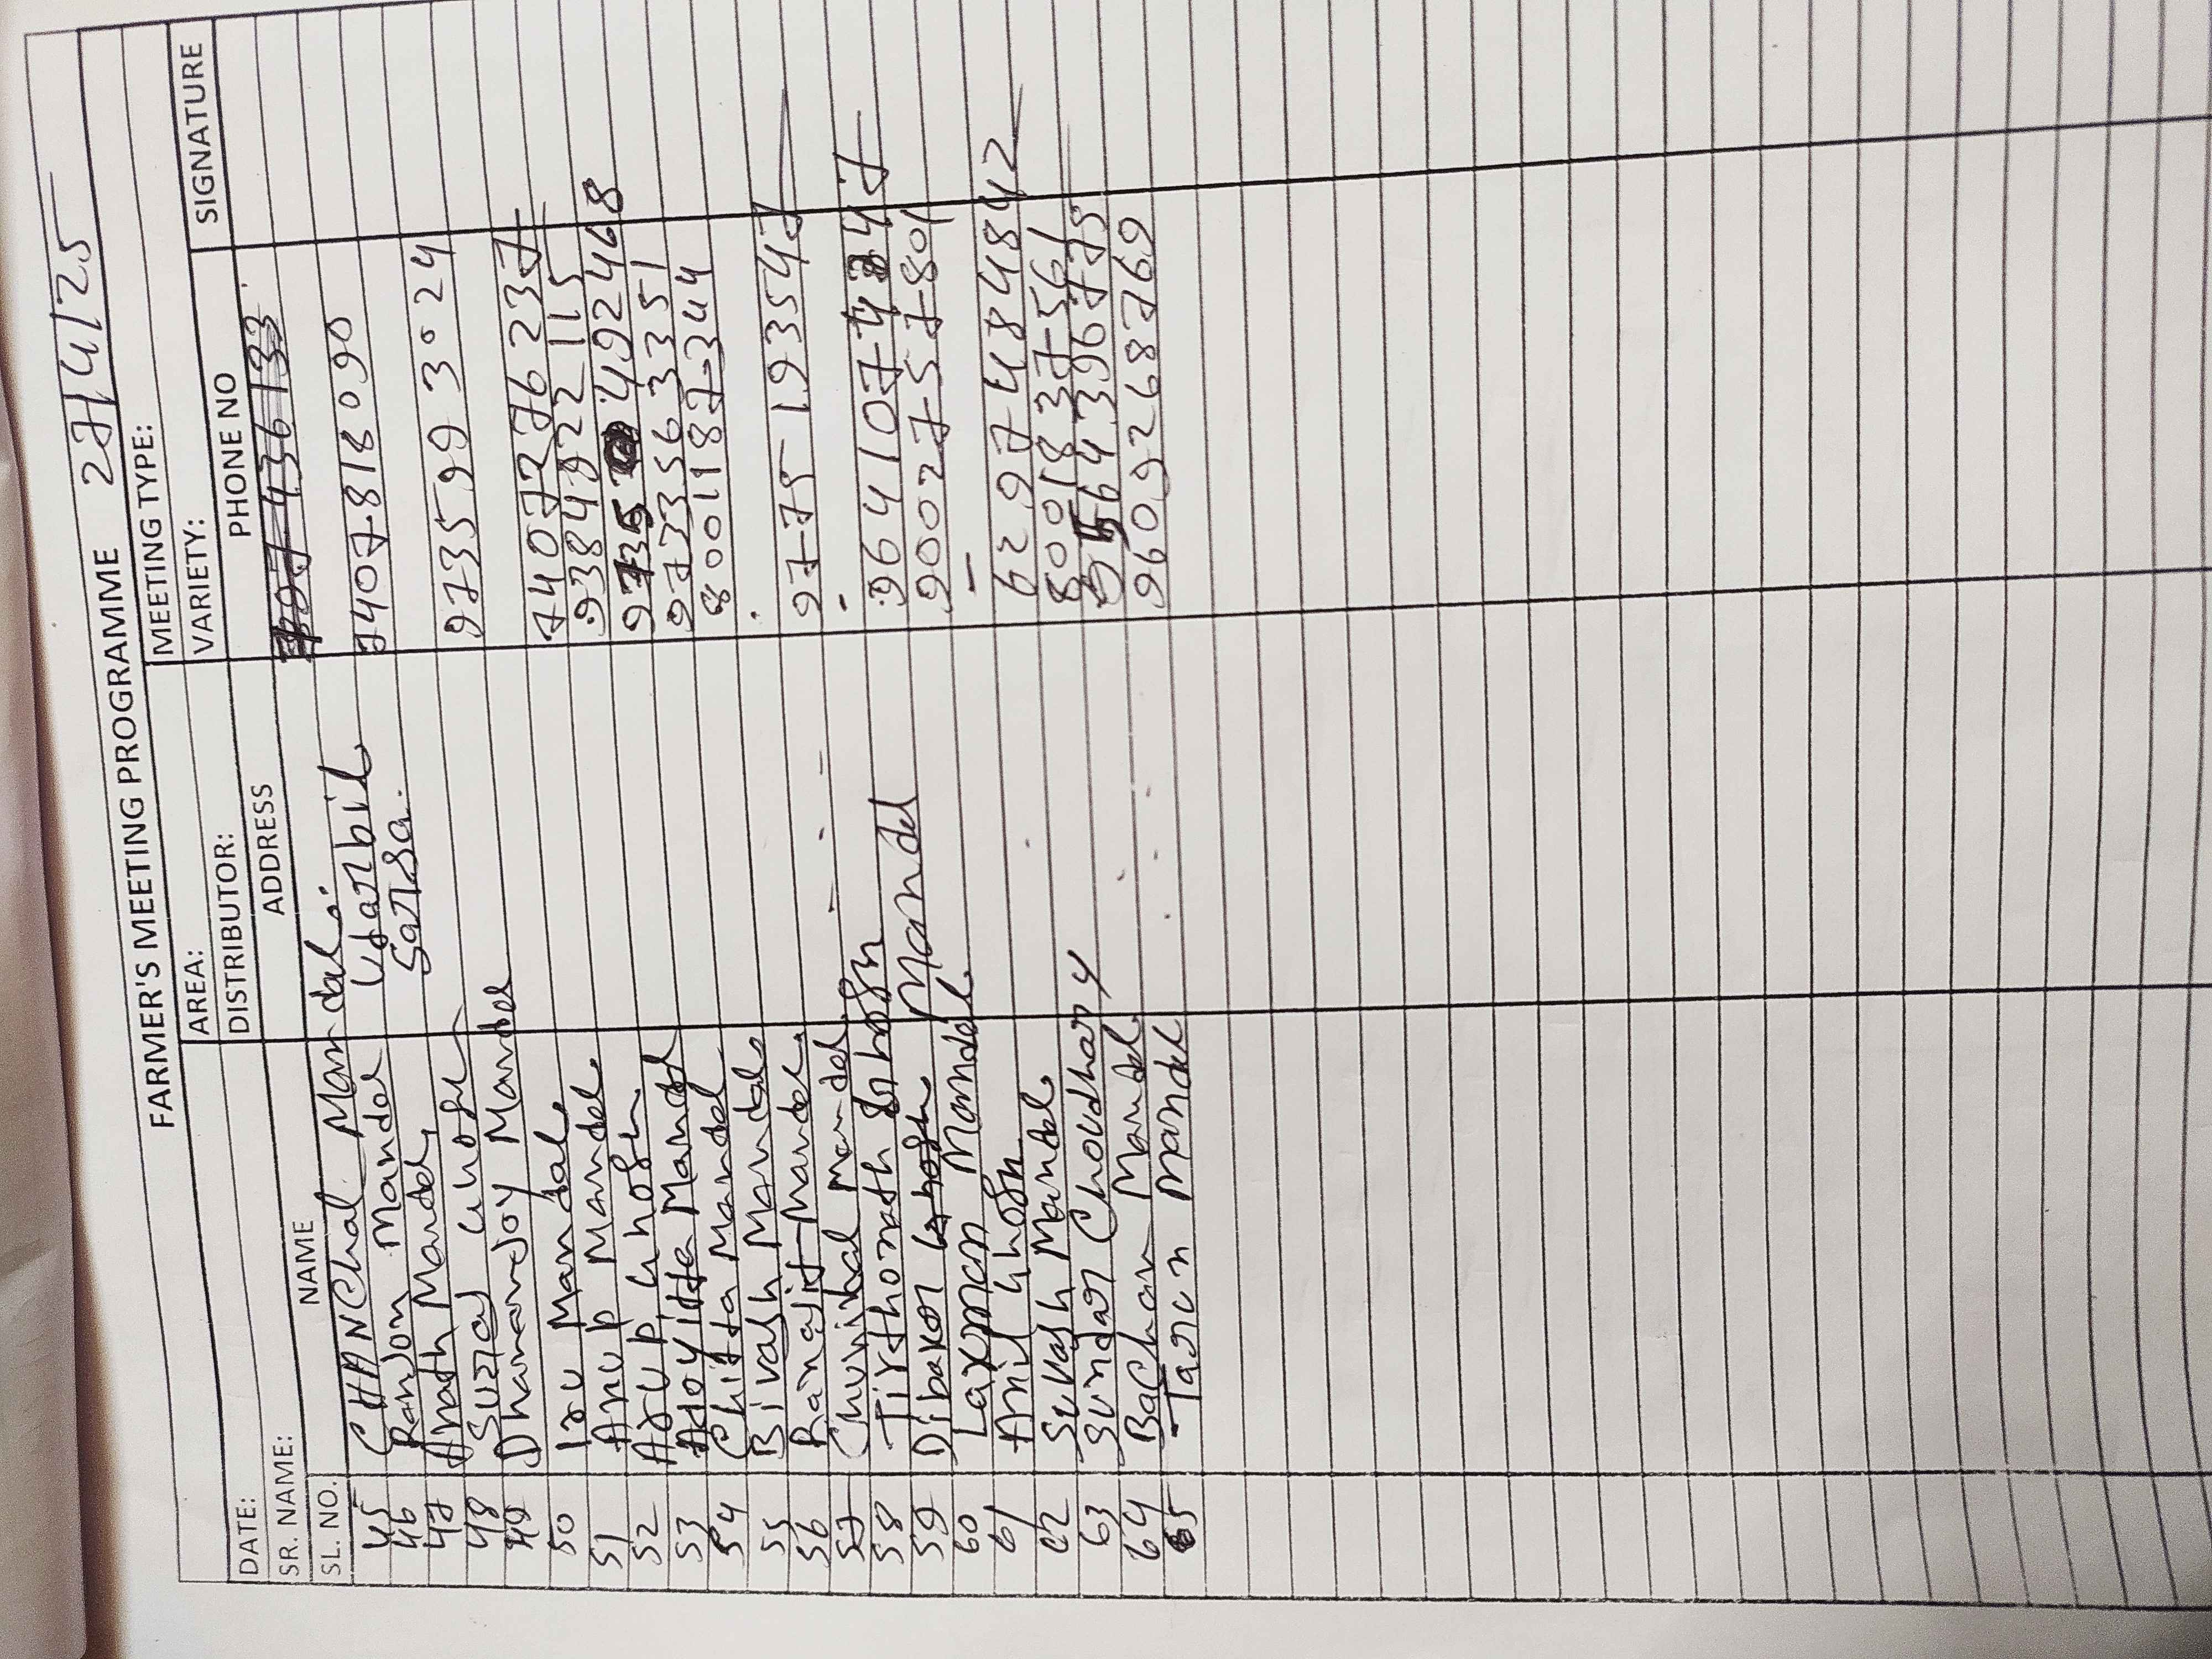 FARMER'S MEETING PROGRAMME 27/4/25
AREA: MEETING TYPE:
DATE: DISTRIBUTOR: VARIETY:
SR. NAME:
SL. NO. NAME ADDRESS PHONE NO SIGNATURE
45 CHANChal Mandal.
46 Ranjon Mandel 7407818090
47 Anath Mandel
48 Suraj Ghosh 9735993024
49 Dhananjoy Mandel
50 Iru Mandal 7407276237
51 Anup Mandel 9384922115
52 Arup Ghosh 9735 492468
53 Mandal 9733563351
54 Chitta Mandel 8001187344
55 Bivash Mandal
56 Ranajit Mandel 9775193547
57 Mandel
58 Tirthonath Ghosh 964107
59 Dibakor Mandel 9002757801
60 Laxman Mandel -
61 Anil Ghosh 6297484842
62 Suvash Mandel 8001837561
63 Sundar Choudhary
64 Bachan Mandel 9609268769
65 Tarun Mandel